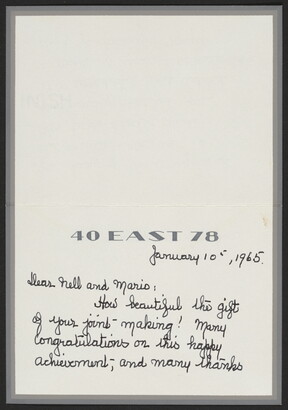 40 EAST 78
January 10th, 1965.
Dear Nell and Mario:
How beautiful the gift
of your joint-making! Many
congratulations on this happy
achievement, and many thanks